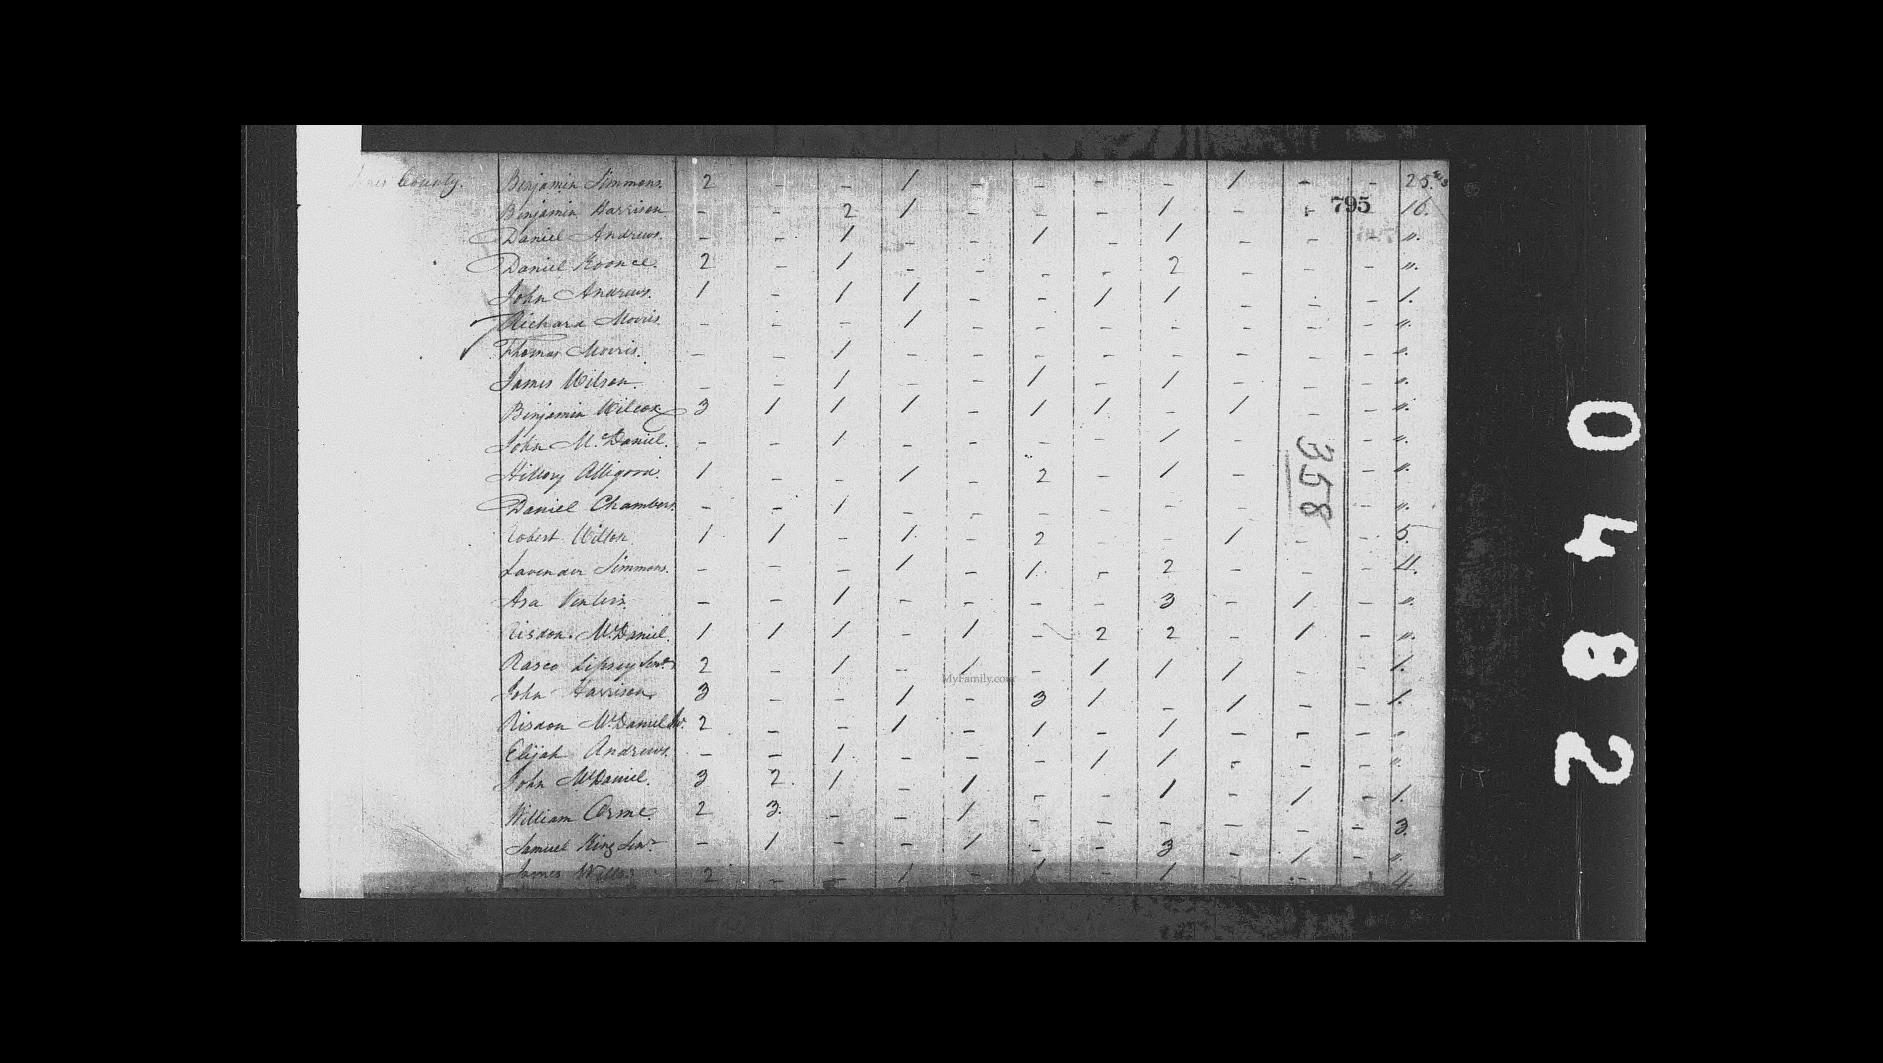 County. Benjamin Simmons. 2 - - 1 - - - - 1 - - 25.
Benjamin Harrison - - 2 1 - - - 1 - - 795 16.
Daniel Andrews. - - 1 - - 1 - 1 - - - ".
Daniel Koonce. 2 - 1 - - - - 2 - - - ".
John Andrews. 1 - 1 1 - - 1 1 - - - 1.
Richard Morris. - - - 1 - - - - - - - ".
Thomas Morris. - - 1 - - - - - - - - ".
James Wilson. - - 1 - - 1 - 1 - - - ".
Benjamin Wilcox 3 1 1 1 - 1 1 - 1 - - ".
John McDaniel. - - 1 - - - - 1 - - ".
Hillory Alligood. 1 - - 1 - 2 - 1 - - ".
Daniel Chambers. - - 1 - - - - - - - ".
Robert Wilton 1 1 - 1 - 2 - - 1 - - 5.
Lavender Simmons. - - - 1 - 1 - 2 - - - 4.
Asa - - 1 - - - - 3 - 1 - ".
Risdon McDaniel. 1 1 1 - 1 - 2 2 - 1 - ".
Rasco Lipsey Senr. 2 - 1 - 1 - 1 1 1 - - 1.
John Harrison 3 - - 1 - 3 1 - 1 - - 1.
Risdon McDaniel Jr. 2 - - 1 - 1 - 1 - - - "
Elijah Andrews. - - 1 - - - 1 1 - - - ".
John McDaniel. 3 2 1 - 1 - - 1 - 1 - 1.
William Orme. 2 3 - - 1 - - - - - - 3.
Samuel King Senr. - 1 - - 1 - - 3 - 1 - ".
James 2 - - 1 - 1 - 1 - - - 4.
358
MyFamily.com
0482